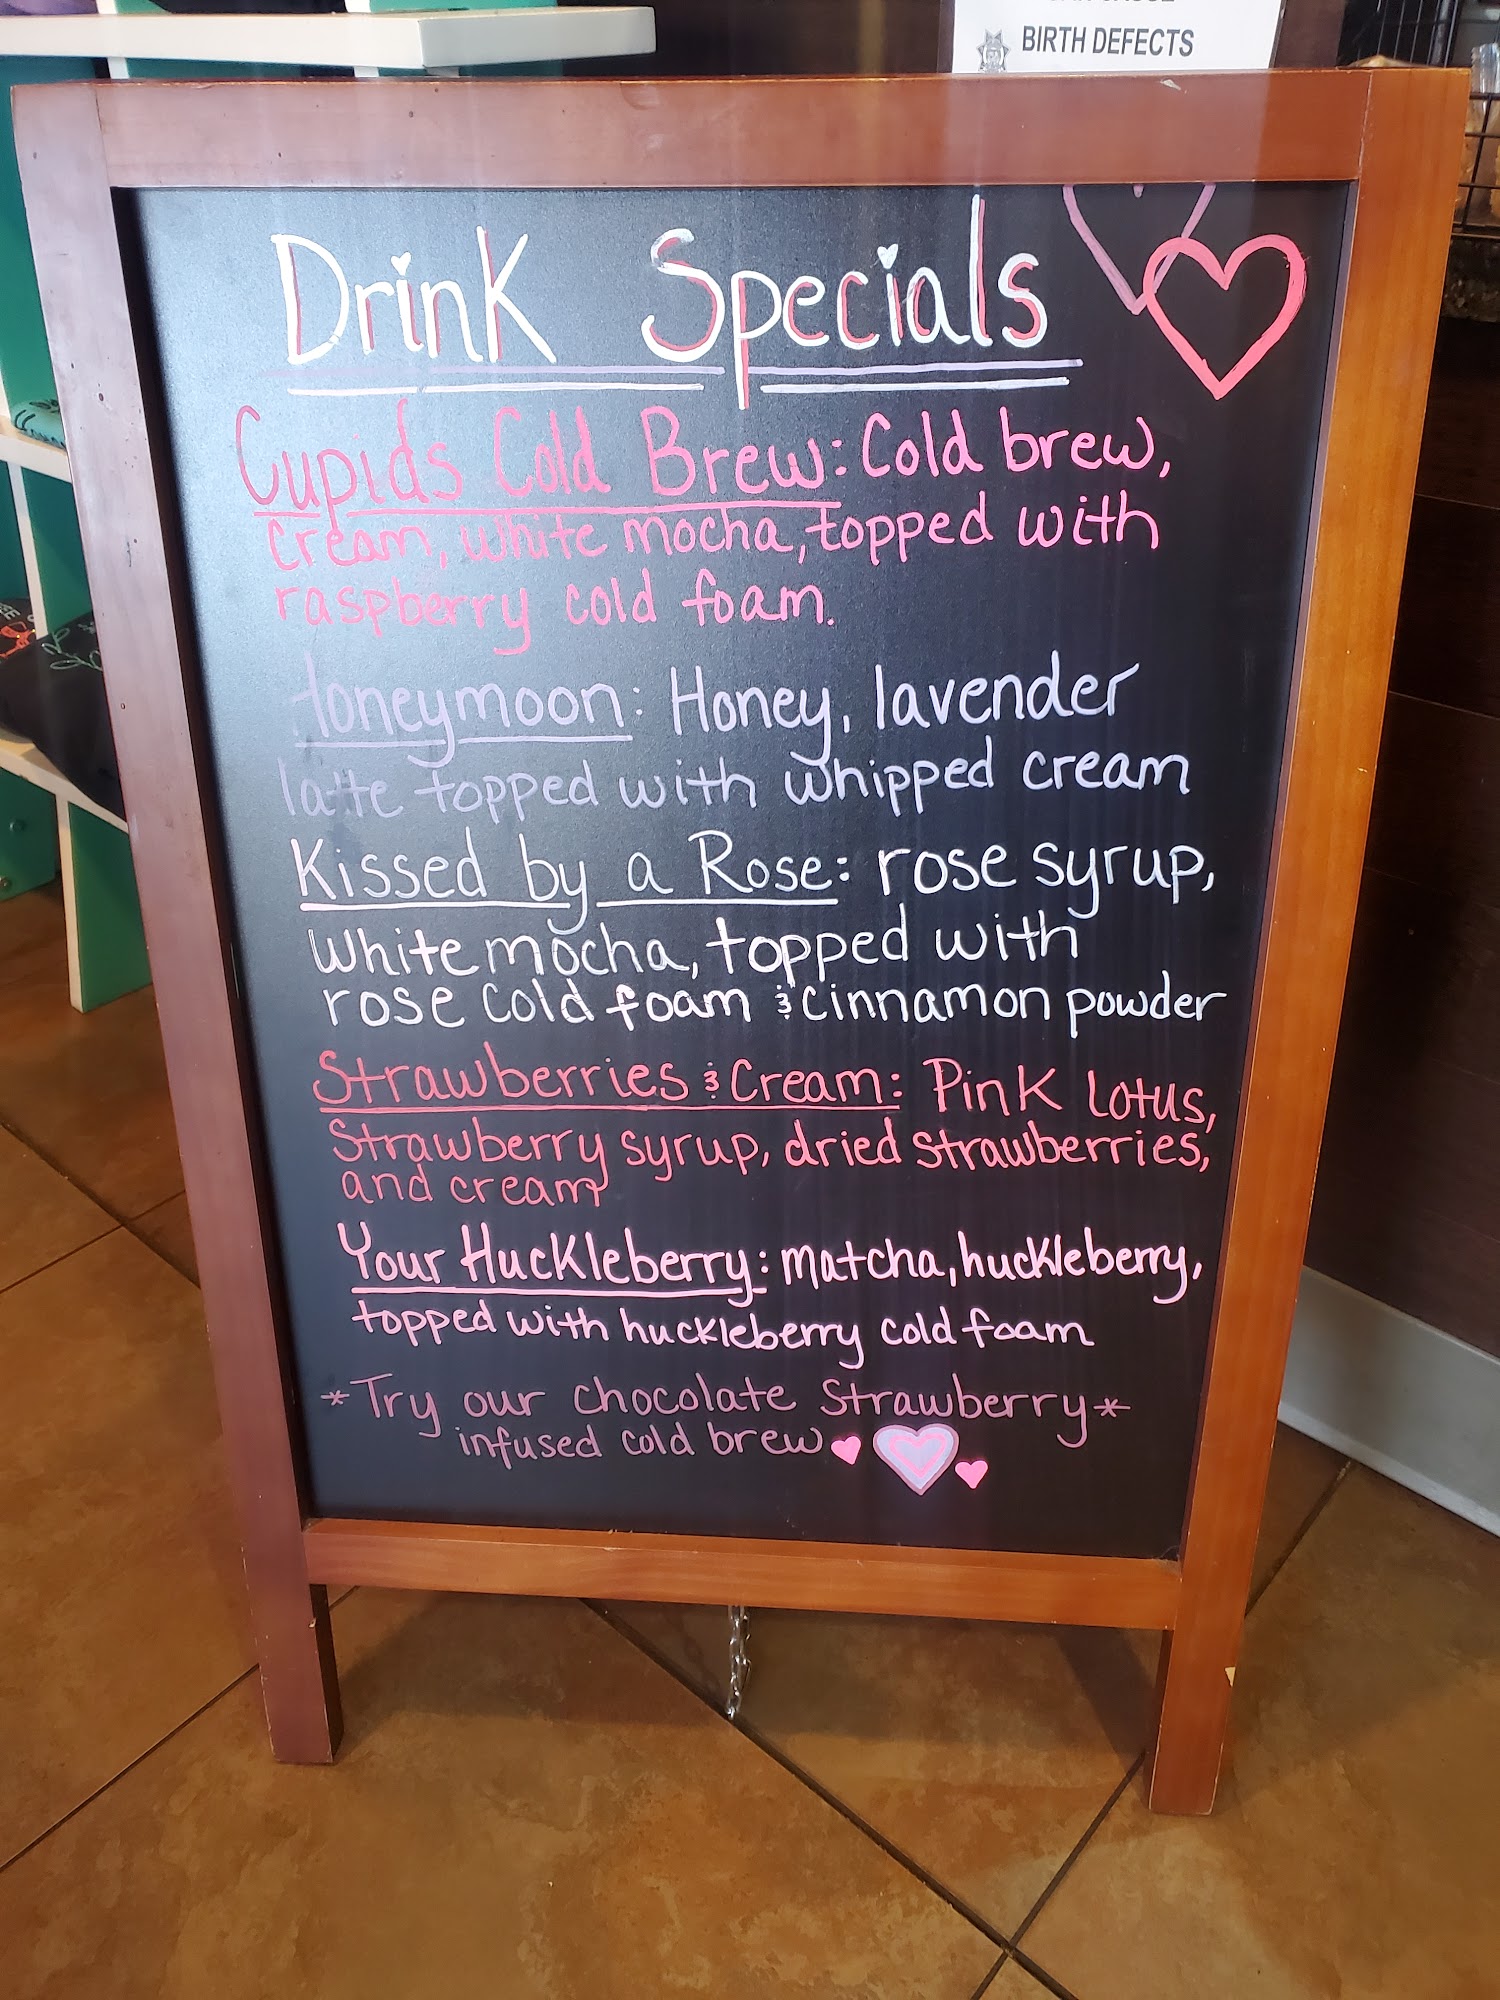 BIRTH DEFECTS
Drink Specials
Cupids Cold Brew: Cold brew,
cream, white mocha, topped with
raspberry cold foam.
Honeymoon: Honey, lavender
latte topped with whipped cream
Kissed by a Rose: rose syrup,
white mocha, topped with
rose cold foam & cinnamon powder
Strawberries & Cream: Pink Lotus,
Strawberry syrup, dried strawberries,
and cream
Your Huckleberry: matcha, huckleberry,
topped with huckleberry cold foam
*Try our chocolate Strawberry*
infused cold brew